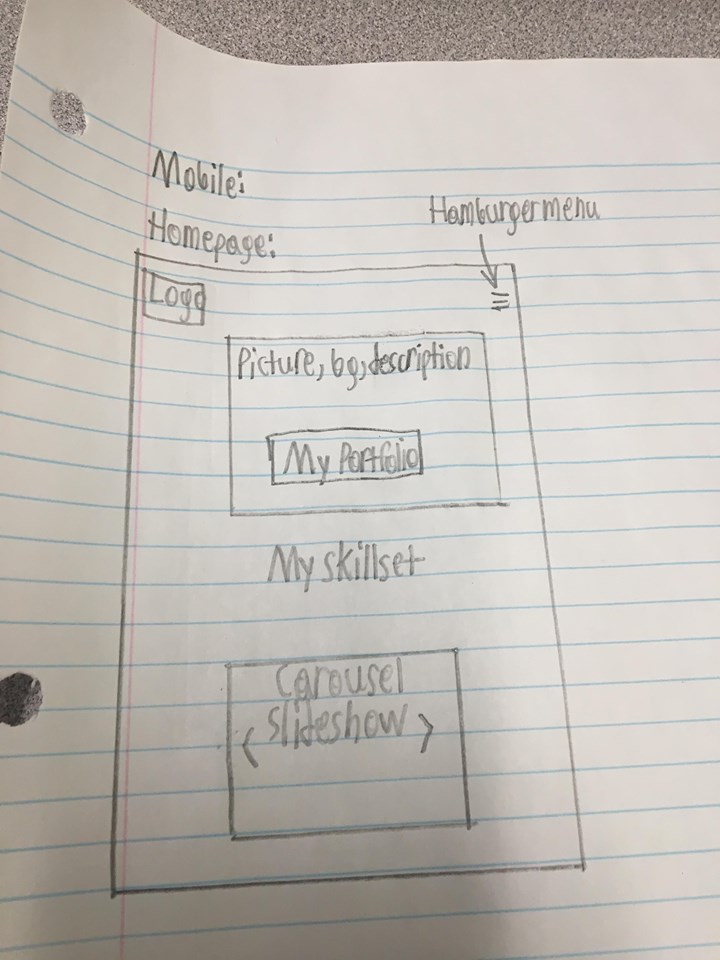 Mobile:
Homepage:
Hamburger menu
Logo
Picture, bg, description
My Portfolio
My skillset
Carousel
Slideshow
< >